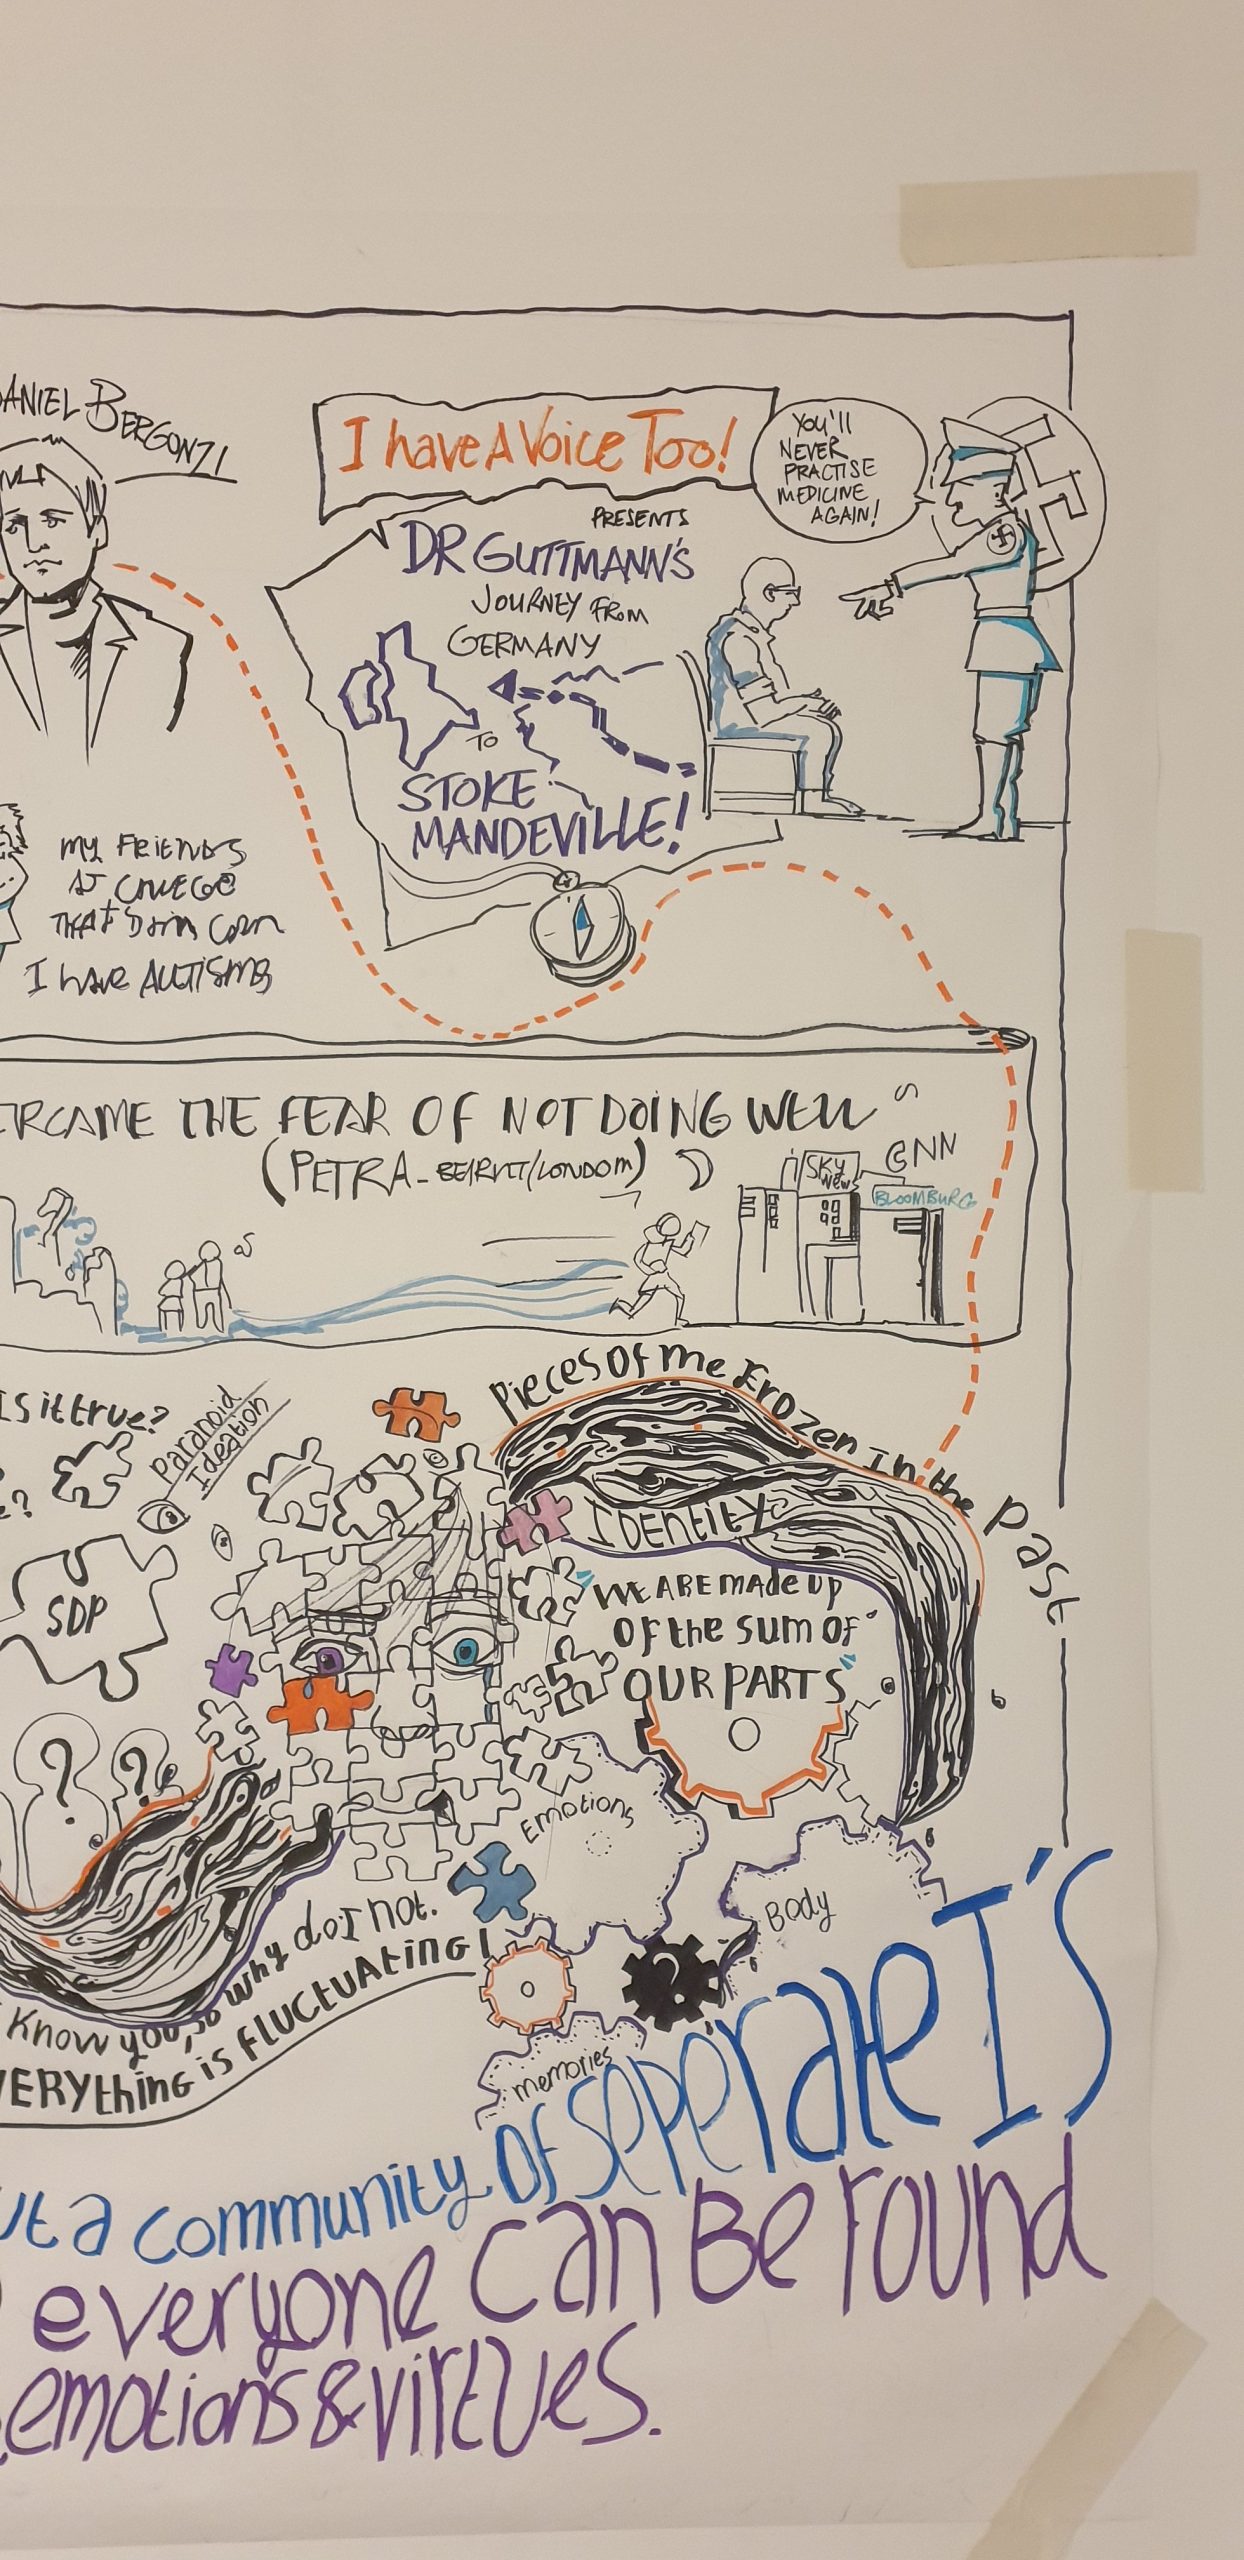 DANIEL BERGONZI
I have A Voice Too!
PRESENTS
DR GUTTMANN'S
JOURNEY FROM
GERMANY
TO
STOKE
MANDEVILLE!
YOU'll
NEVER
PRACTISE
MEDICINE
AGAIN!
MY FRIENDS
AT COLLEGE
THAT
I have AUTISM
THE FEAR OF NOT DOING WELL
(PETRA-BEIRUT/LONDON)
SKY
NEWS
CNN
BLOOMBURG
Is it true?
Paranoid
Ideation
SDP
?
?
Pieces of me Frozen In the Past
IDENTITY
"WE ARE MADE UP
Of the sum of
OUR PARTS"
Emotions
Body
?
memories
Know you, so why do I not.
EVERYthing is FLUCTUATING!
a community of Seperate I's
everyone can Be found
emotions & virtues.